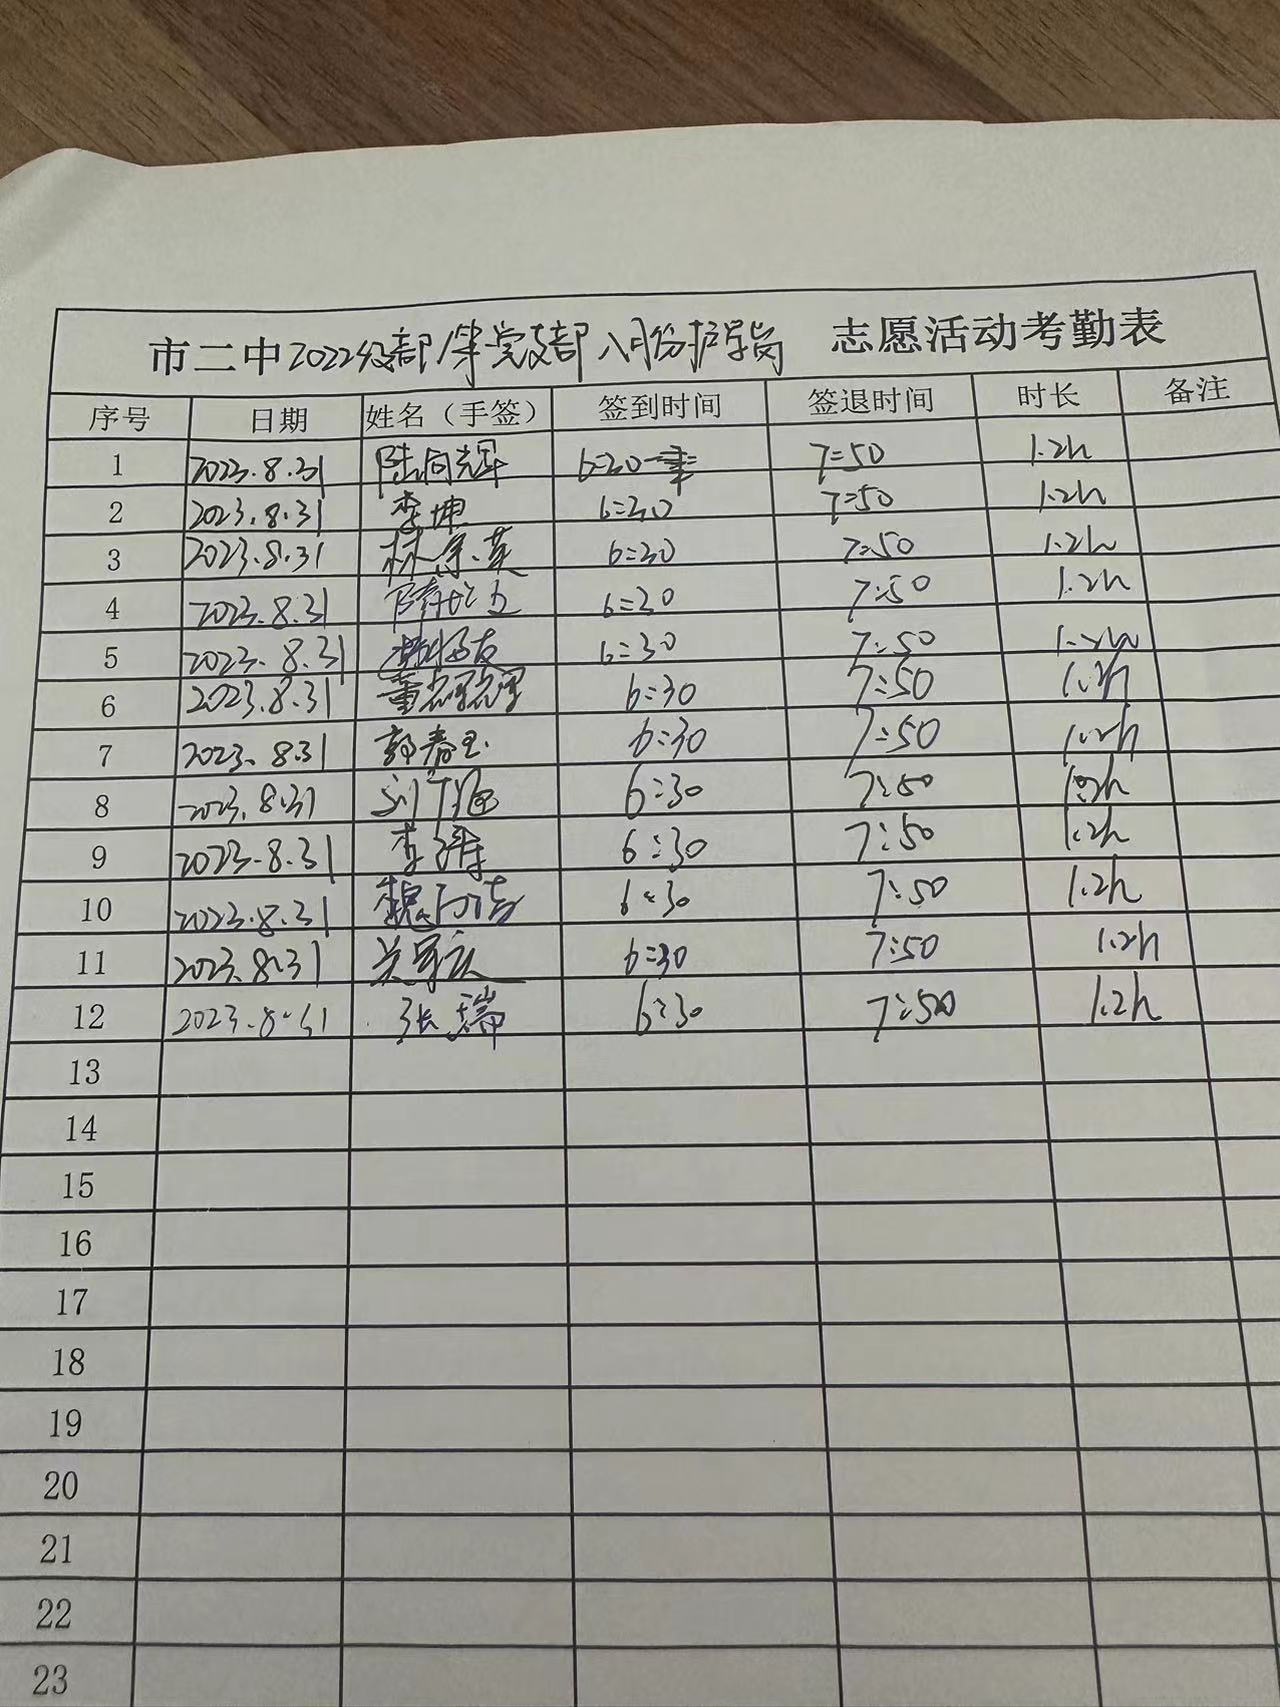 市二中2022级部 党支部八月份护学岗 志愿活动考勤表
序号 日期 姓名（手签） 签到时间 签退时间 时长 备注
1 2023.8.31 陆向辉 6:30 7:50 1.2h
2 2023.8.31 李坤 6:30 7:50 1.2h
3 2023.8.31 林 英 6:30 7:50 1.2h
4 2023.8.31 6:30 7:50 1.2h
5 2023.8.31 6:30 7:50 1.2h
6 2023.8.31 董 6:30 7:50 1.2h
7 2023.8.31 郭春玉 6:30 7:50 1.2h
8 2023.8.31 6:30 7:50 1.2h
9 2023.8.31 李 6:30 7:50 1.2h
10 2023.8.31 魏 6:30 7:50 1.2h
11 2023.8.31 6:30 7:50 1.2h
12 2023.8.31 张瑞 6:30 7:50 1.2h
13
14
15
16
17
18
19
20
21
22
23